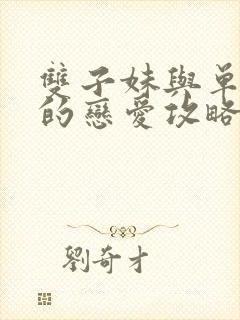 雙子妹與單
的戀愛攻略
劉奇才